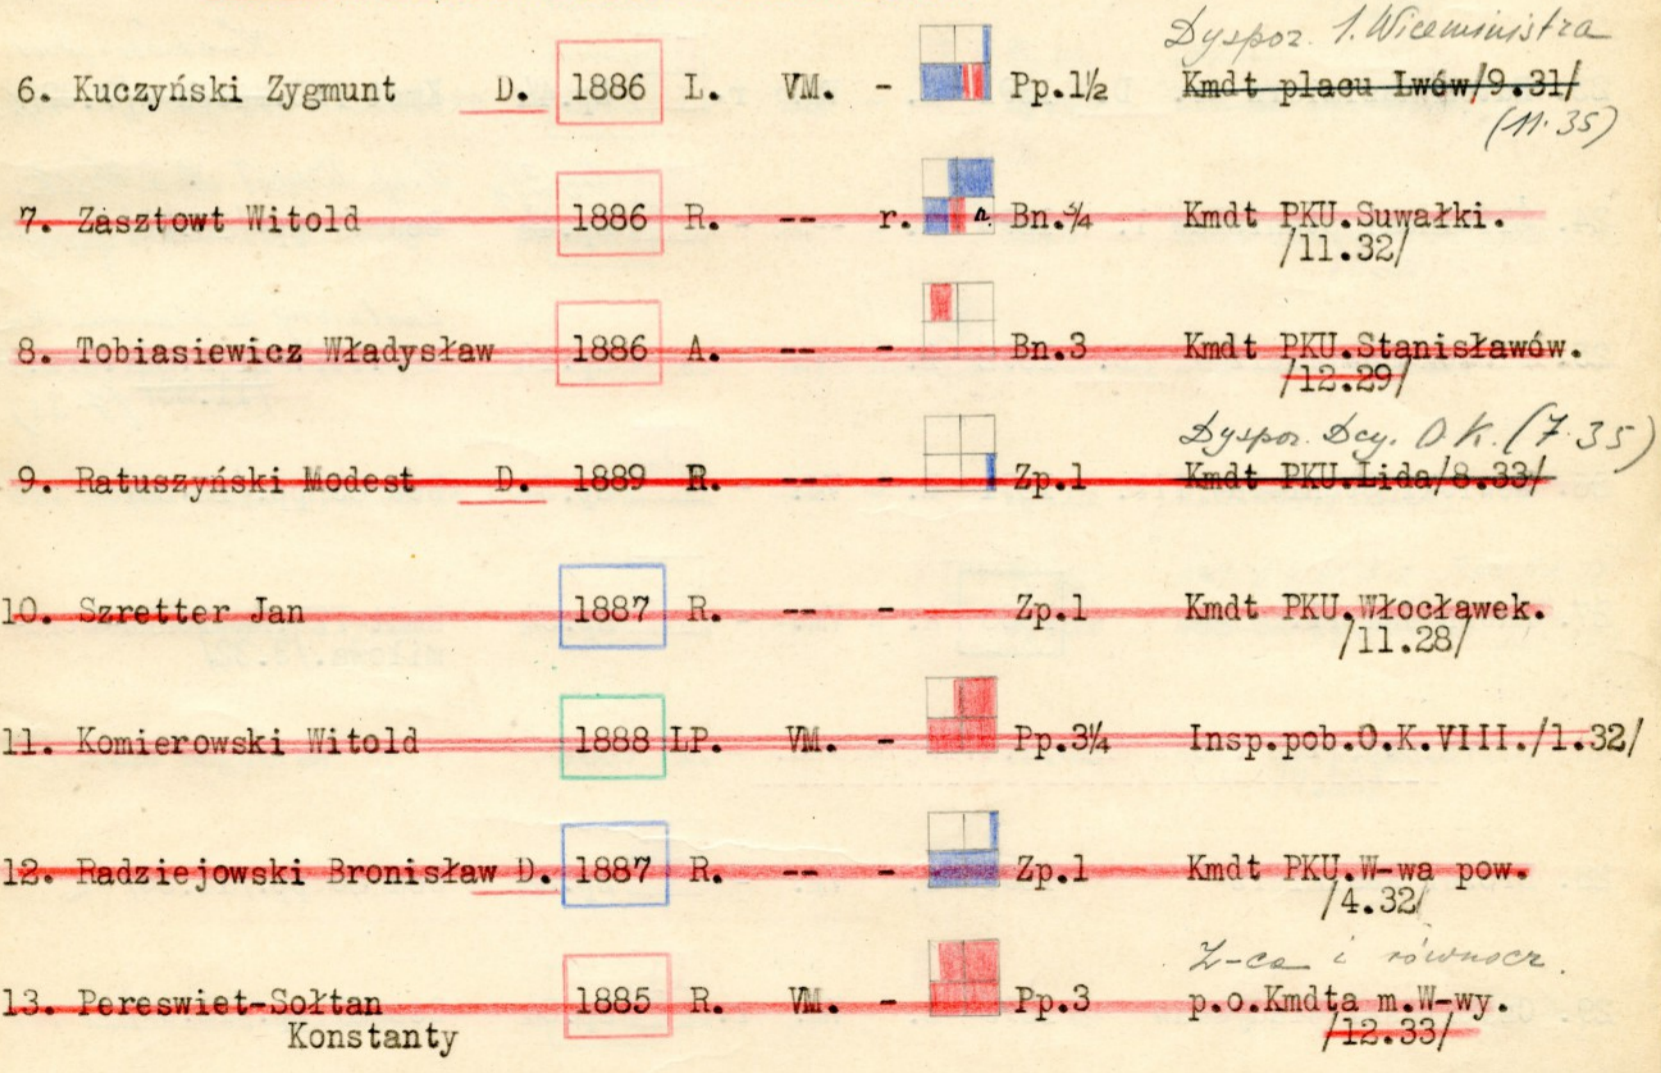 Dyspoz. I. Wiceministra
6. Kuczyński Zygmunt D. 1886 L. VM. - Pp.1½ Kmdt placu Lwów/9.31/
(11.35)
7. Zasztowt Witold 1886 R. -- r. n. Bn.¾ Kmdt PKU.Suwałki.
/11.32/
8. Tobiasiewicz Władysław 1886 A. -- - Bn.3 Kmdt PKU.Stanisławów.
/12.29/
Dyspoz. Dcy. O.K. (7.35)
9. Ratuszyński Modest D. 1889 R. -- - Zp.1 Kmdt PKU.Lida/8.33/
10. Szretter Jan 1887 R. -- - Zp.1 Kmdt PKU.Włocławek.
/11.28/
11. Komierowski Witold 1888 LP. VM. - Pp.3¼ Insp.pob.O.K.VIII./1.32/
12. Radziejowski Bronisław D. 1887 R. -- - Zp.1 Kmdt PKU.W-wa pow.
/4.32/
Z-ca i równocz.
13. Pereswiet-Sołtan 1885 R. VM. - Pp.3 p.o.Kmdta m.W-wy.
Konstanty /12.33/